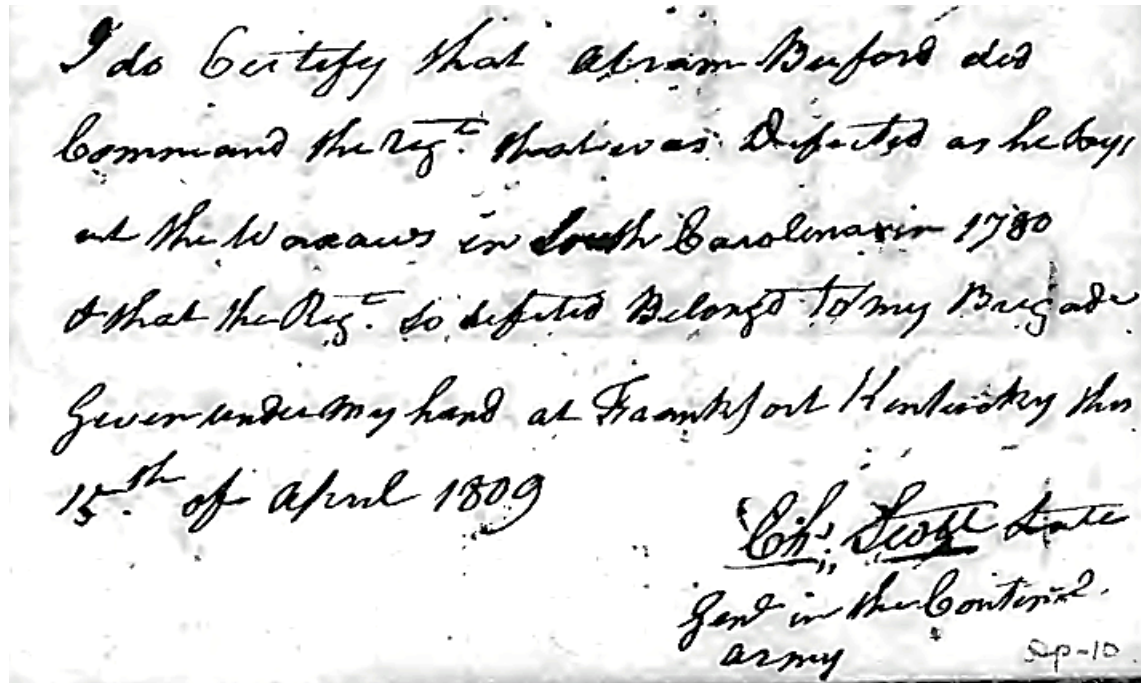 I do Certify that Abram Buford did
Command the Regt. that was Defeted as he Says
at the Waxaws in South Carolina in 1780
& that the Regt. So defeted Belongd To my Brigade
Given under my hand at Frankfort Kentucky this
15.th of April 1809
Chs. Scott Late
Genl in the Continl.
army
Ap-10